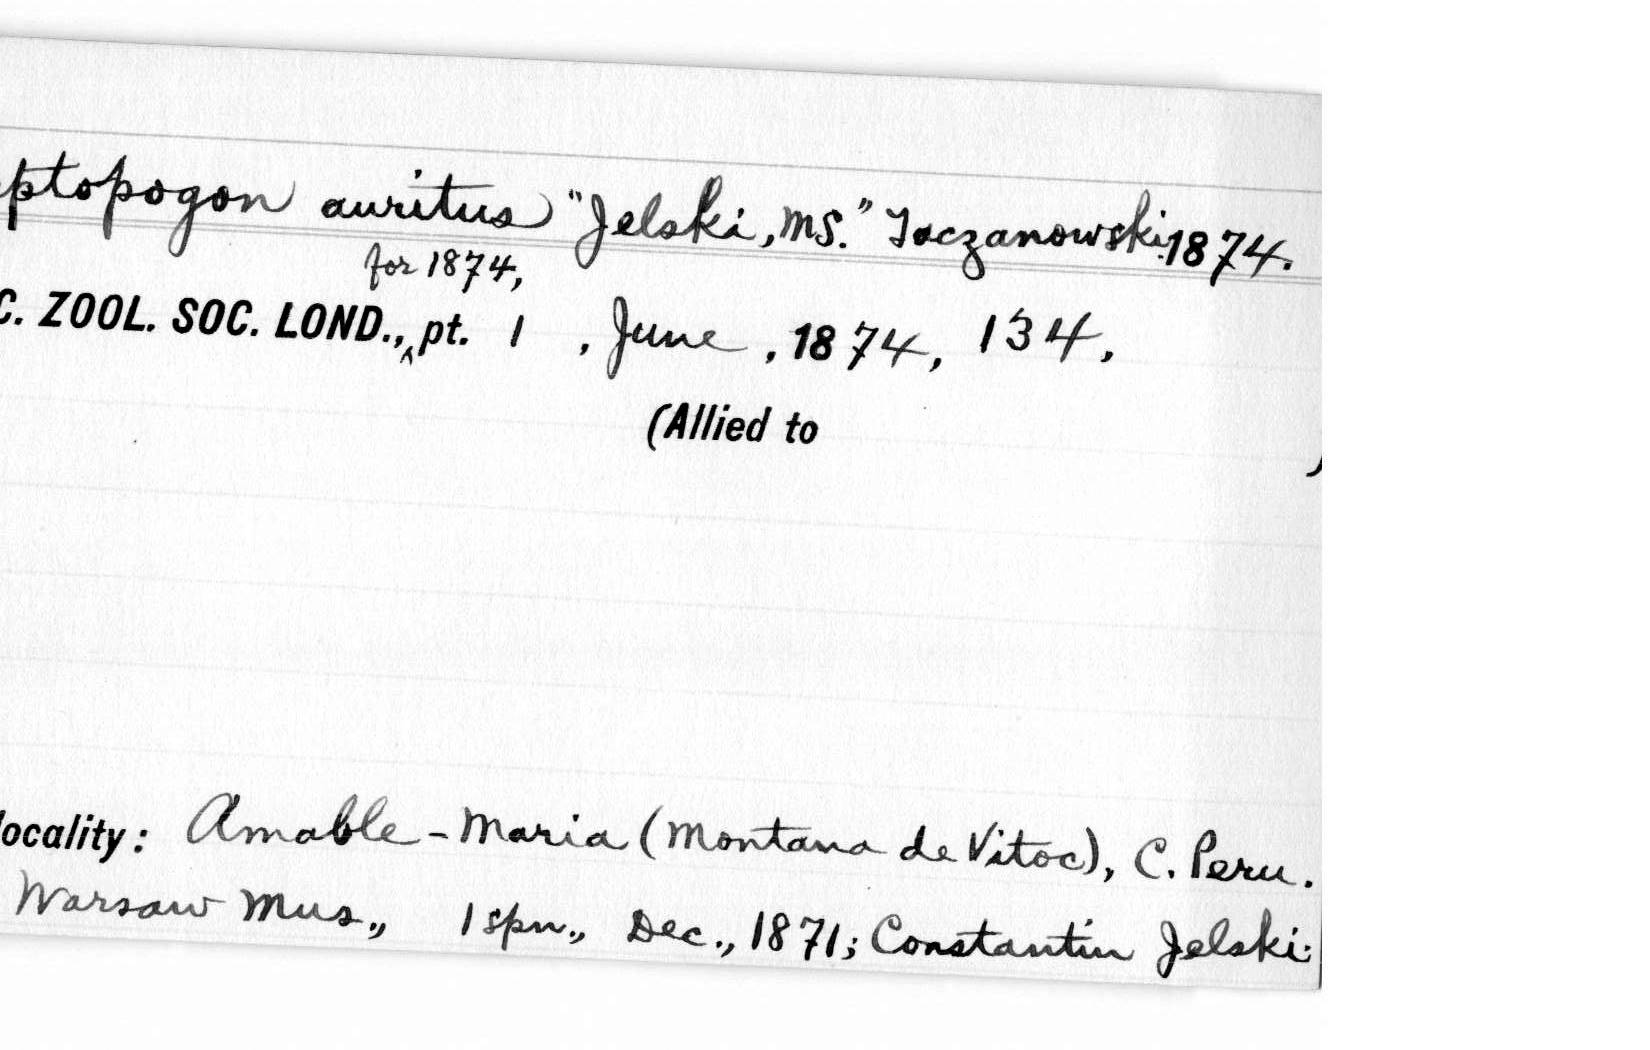 ptopogon auritus "Jelski, MS." Taczanowski. 1874.
for 1874,
C. ZOOL. SOC. LOND., ^ pt. 1 , June , 1874, 134,
(Allied to )
locality: Amable-Maria (Montana de Vitoc), C. Peru.
Warsaw Mus., 1 spn., Dec., 1871; Constantin Jelski.